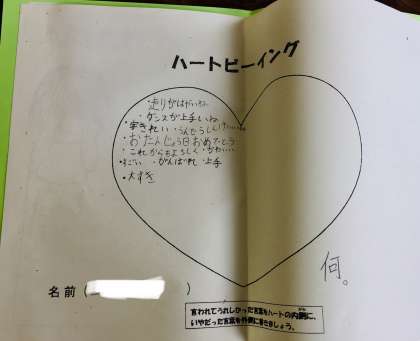 ハートビーイング
・走りがはやいね
・ダンスが上手いね
・字きれい ・うんどうしんけい……
・おたんじょう日おめでとう
・これからもよろしく ・かわいい
・すごい ・がんばれ ・上手
・大すき
何。
名前( )
言われてうれしかった言葉をハートの内側に、
いやだった言葉を外側に書きましょう。